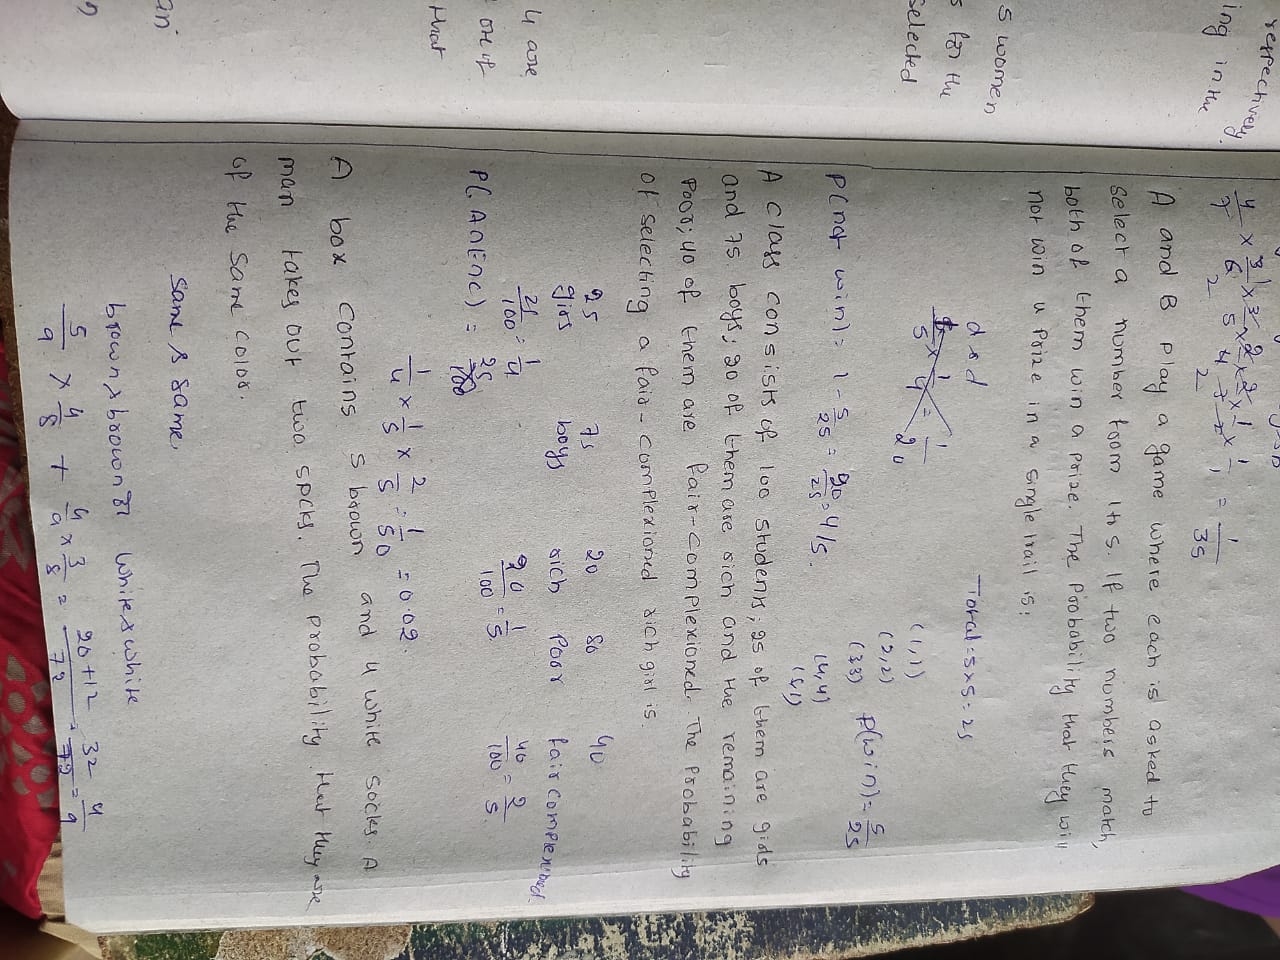 respectively.
ing in the
5 women
s for the
selected
4 are
one of
that
an.
4/7 × 3/6 × 3/5 × 2/4 × 2/3 × 1/2 × 1/1 = 1/35
A and B play a game where each is asked to
select a number from 1 to 5. If two numbers match,
both of them win a prize. The Probability that they will
not win a prize in a single trail is:
Total = 5×5 = 25
d × d
1/5 × 1/4 = 1/20
(1,1)
(2,2)
(3,3)
(4,4)
(5,1)
P(win) = 5/25
P(not win) = 1 - 5/25 = 20/25 = 4/5.
A class consists of 100 students; 25 of them are girls
and 75 boys; 20 of them are rich and the remaining
Poor; 40 of them are fair-complexioned. The Probability
of selecting a fair-complexioned rich girl is.
25 75 20 80 40
girls boys rich Poor fair complexined.
25/100 = 1/4 20/100 = 1/5 40/100 = 2/5.
P(A∩B∩C) = 25/100
1/4 × 1/5 × 2/5 = 1/50 = 0.02.
A box contains 5 brown and 4 white socks. A
man takes out two socks. The probability that they are
of the same color.
same & same.
brown × brown or white × white
5/9 × 4/8 + 4/9 × 3/8 = 20+12/72 = 32/72 = 4/9